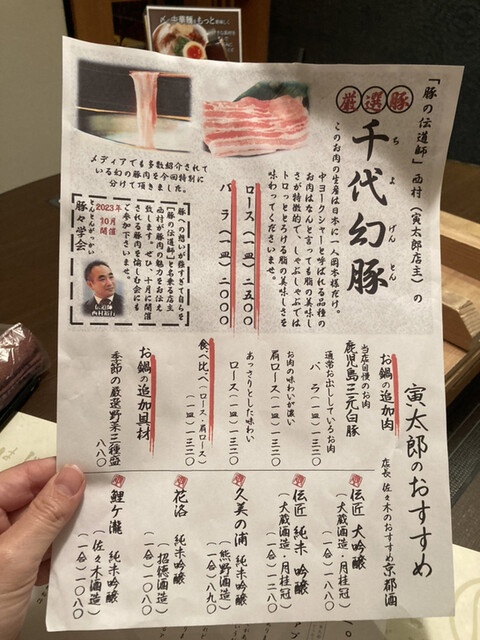 〆の中華麺をもっと美味しく
「豚の伝道師」西村（寅太郎店主）の
厳選豚
千代幻豚
ちよげんとん
このお肉の生産は日本に一人岡本様だけ。
中ヨークシャーと呼ばれる品種の
お肉はなんと言っても脂の美味しさ
が特徴的で、しゃぶしゃぶでは
トロッととろける脂の美味しさを
味わってくださいませ。
ロース（一皿）二五〇〇
バラ（一皿）二〇〇〇
メディアでも多数紹介されて
いる幻の豚肉を今回特別に
分けて頂きました。
豚への想いが強すぎて自らを
「豚の伝道師」と名乗る店主
西村が豚肉の魅力をお伝え
致します。ぜひ、十月に開催
される豚肉を愉しむ会にも
ご参加下さいませ。
2023年
10月
開催
とんとんがっかい
豚々学会
伝道師
西村裕行
寅太郎のおすすめ
お鍋の追加肉
当店自慢のお肉
鹿児島三元白豚
通常お出ししているお肉
バラ（一皿）一三二〇
お肉の味わいが濃い
肩ロース（一皿）一三二〇
あっさりとした味わい
ロース（一皿）一三二〇
食べ比べ（ロース・肩ロース）
（一皿）一三二〇
お鍋の追加具材
季節の厳選野菜三種盛
八八〇
店長 佐々木のおすすめ京都酒
伝匠 大吟醸
（大蔵酒造・月桂冠）
（一合）一八〇
伝匠 純米吟醸
（大蔵酒造・月桂冠）
（一合）一二八〇
久美の浦 純米吟醸
（熊野酒造）
（一合）八九〇
花洛 純米吟醸
（招德酒造）
（一合）一〇八〇
鯉ケ瀧 純米吟醸
（佐々木酒造）
（一合）一〇八〇